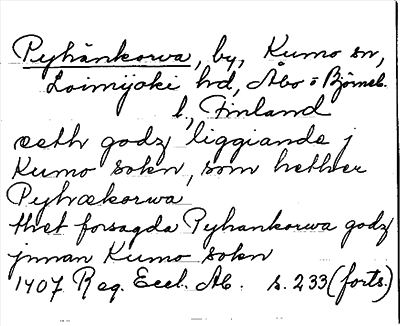 Pyhänkorwa, by, Kumo sn,
Loimijoki hd, Åbo o Björneb.
l., Finland
æeth godz liggiande j
Kumo sokn, som hethær
Pyhækorwa
thet forsagda Pyhankorwa godz
jnnan Kumo sokn
1407 Reg. Eccl. Ab. s. 233 (forts.)